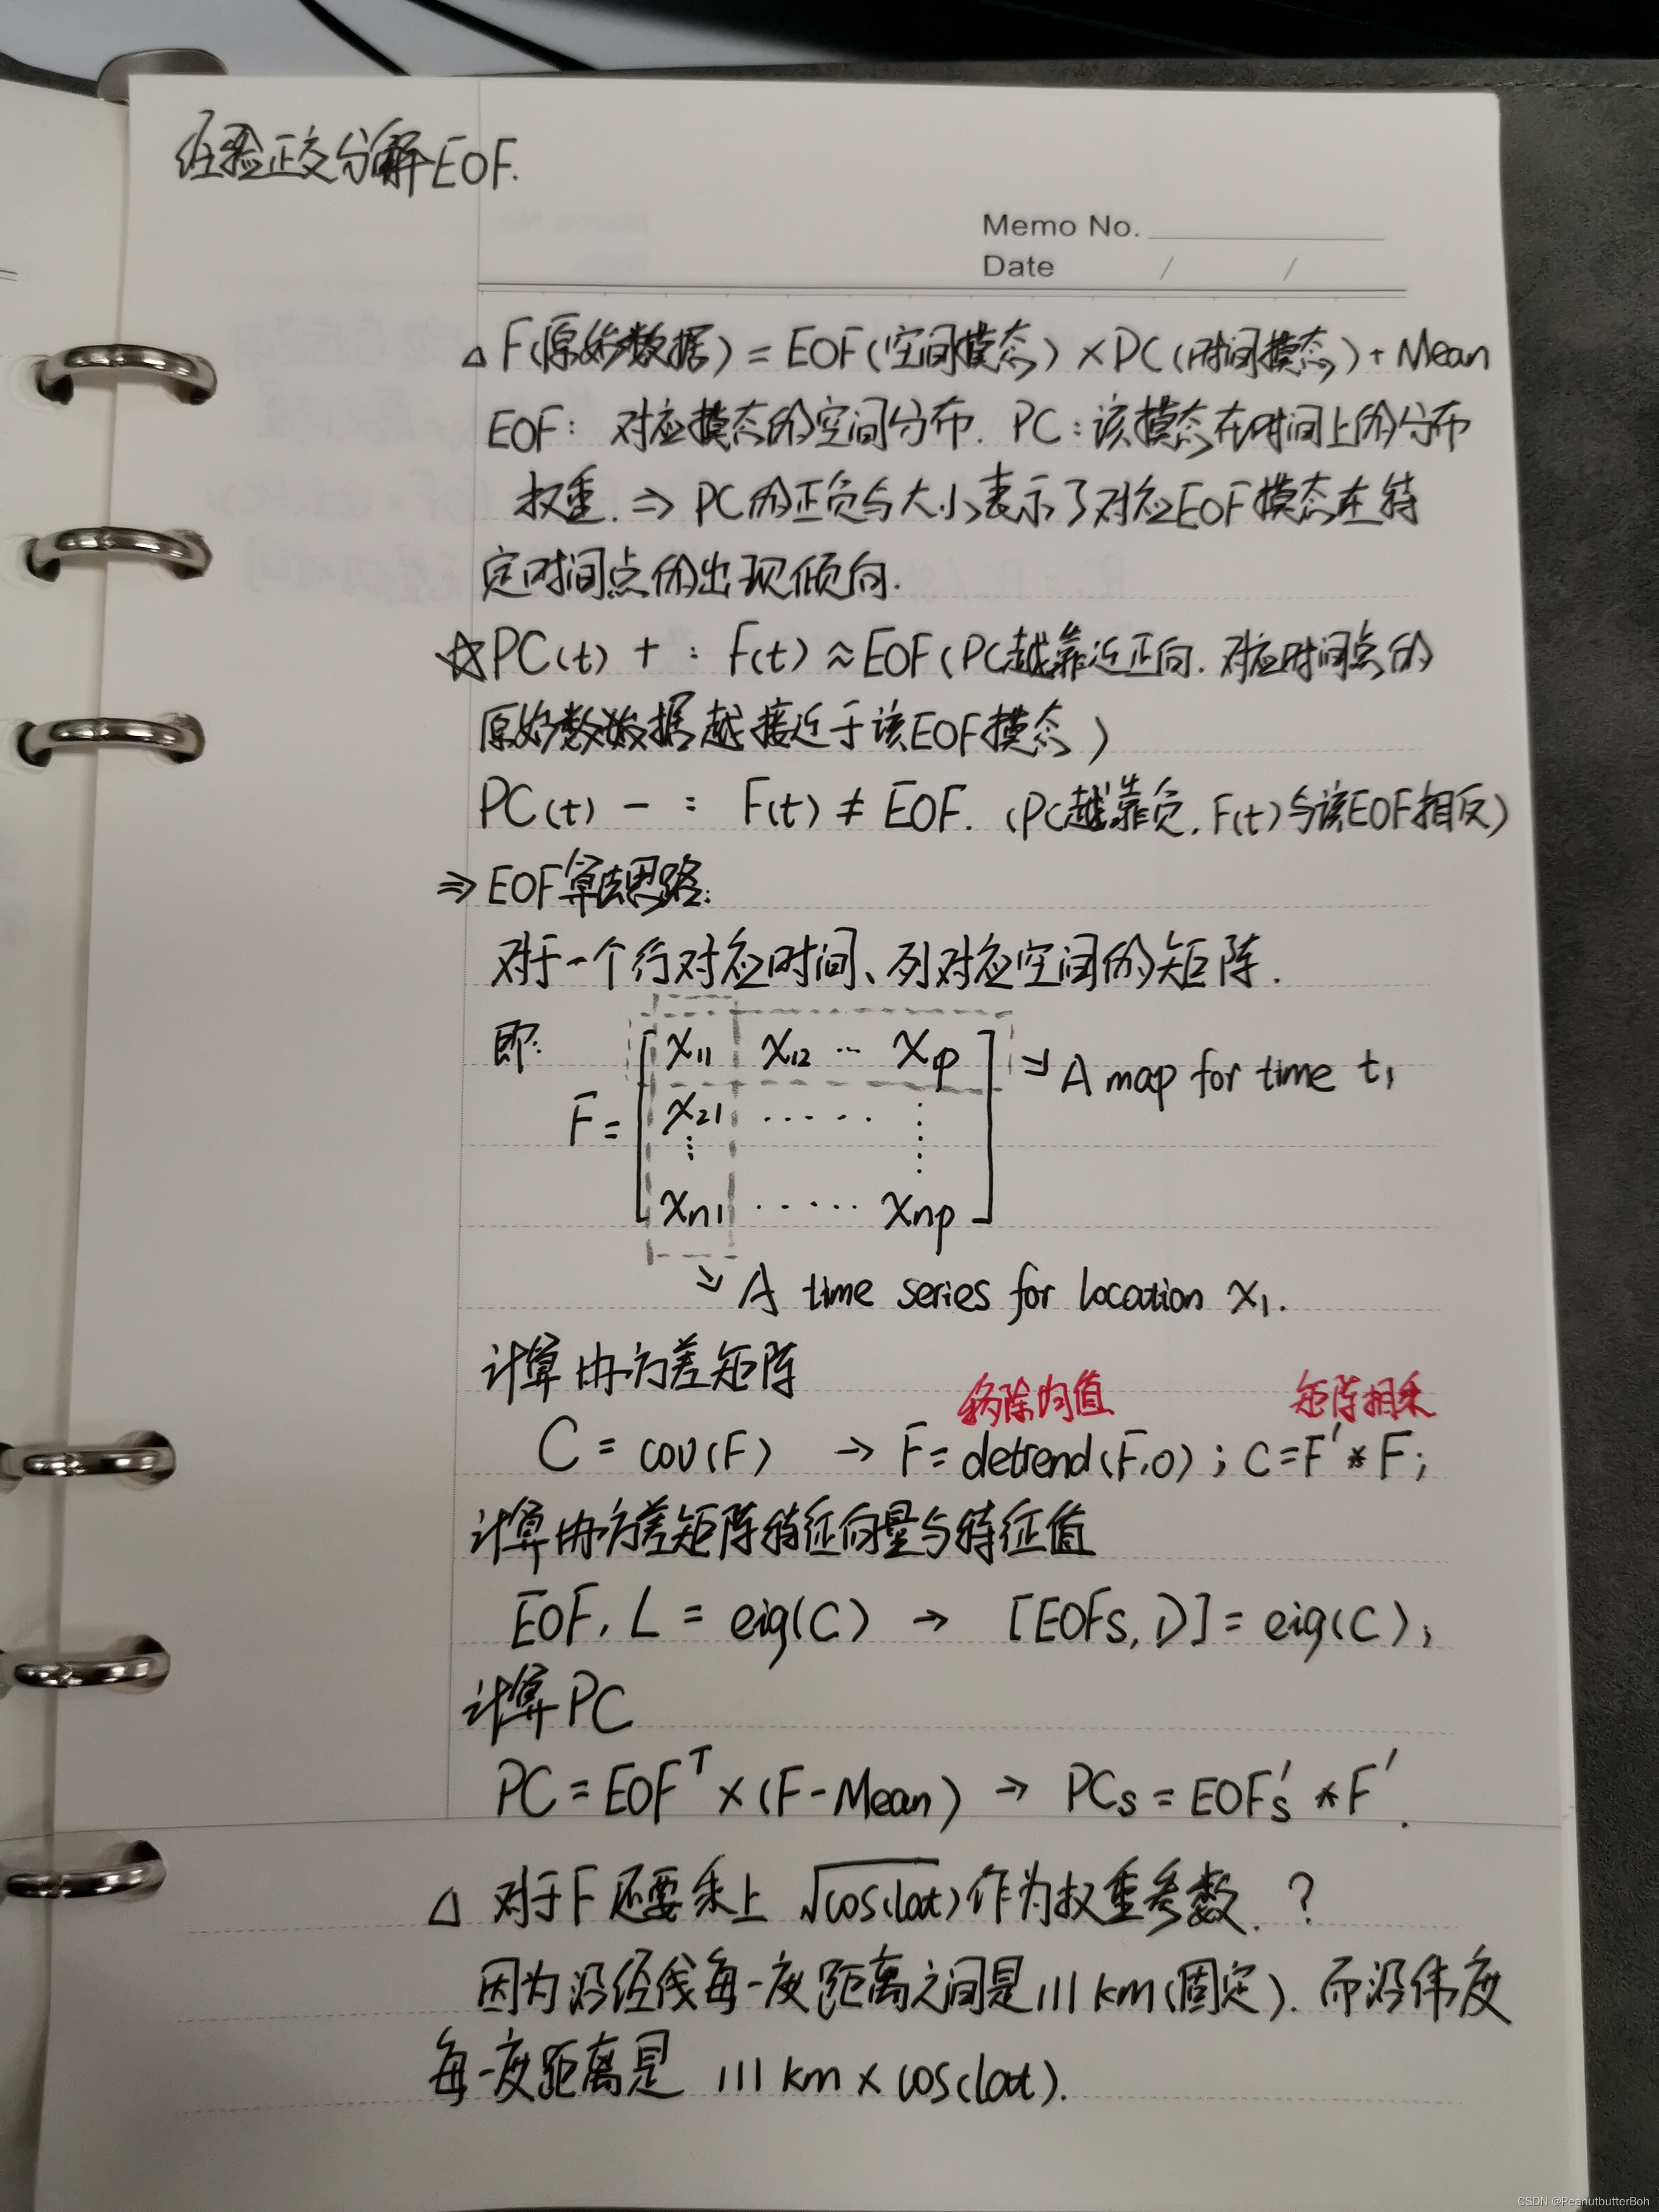 经验正交分解EOF.
Memo No.
Date / /
△ F(原始数据) = EOF(空间模态) × PC(时间模态) + Mean
EOF: 对应模态的空间分布. PC: 该模态在时间上的分布
权重. ⇒ PC的正负与大小表示了对应EOF模态在特
定时间点的出现倾向.
☆PC(t) + : F(t) ≈ EOF (PC越靠近正向. 对应时间点的
原始数据越接近于该EOF模态)
PC(t) - : F(t) ≠ EOF. (PC越靠负, F(t)与该EOF相反)
⇒ EOF算法思路:
对于一个行对应时间、列对应空间的矩阵.
即:
F = [ x11 x12 ... x1p ] → A map for time t1
x21 ..... ⋮
⋮ ⋮
xn1 ..... xnp
↘ A time series for location x1.
计算协方差矩阵
移除均值 矩阵相乘
C = cov(F) → F = detrend(F,0) ; C=F' * F;
计算协方差矩阵特征向量与特征值
EOF, L = eig(C) → [EOFs, D] = eig(C);
计算PC
PC = EOF^T × (F - Mean) → PCs = EOFs' * F'.
△ 对于F还要乘上 √cos(lat) 作为权重参数. ?
因为沿经线每一度距离之间是111km(固定). 而沿纬度
每一度距离是 111 km × cos(lat).
CSDN @PeanutbutterBoh